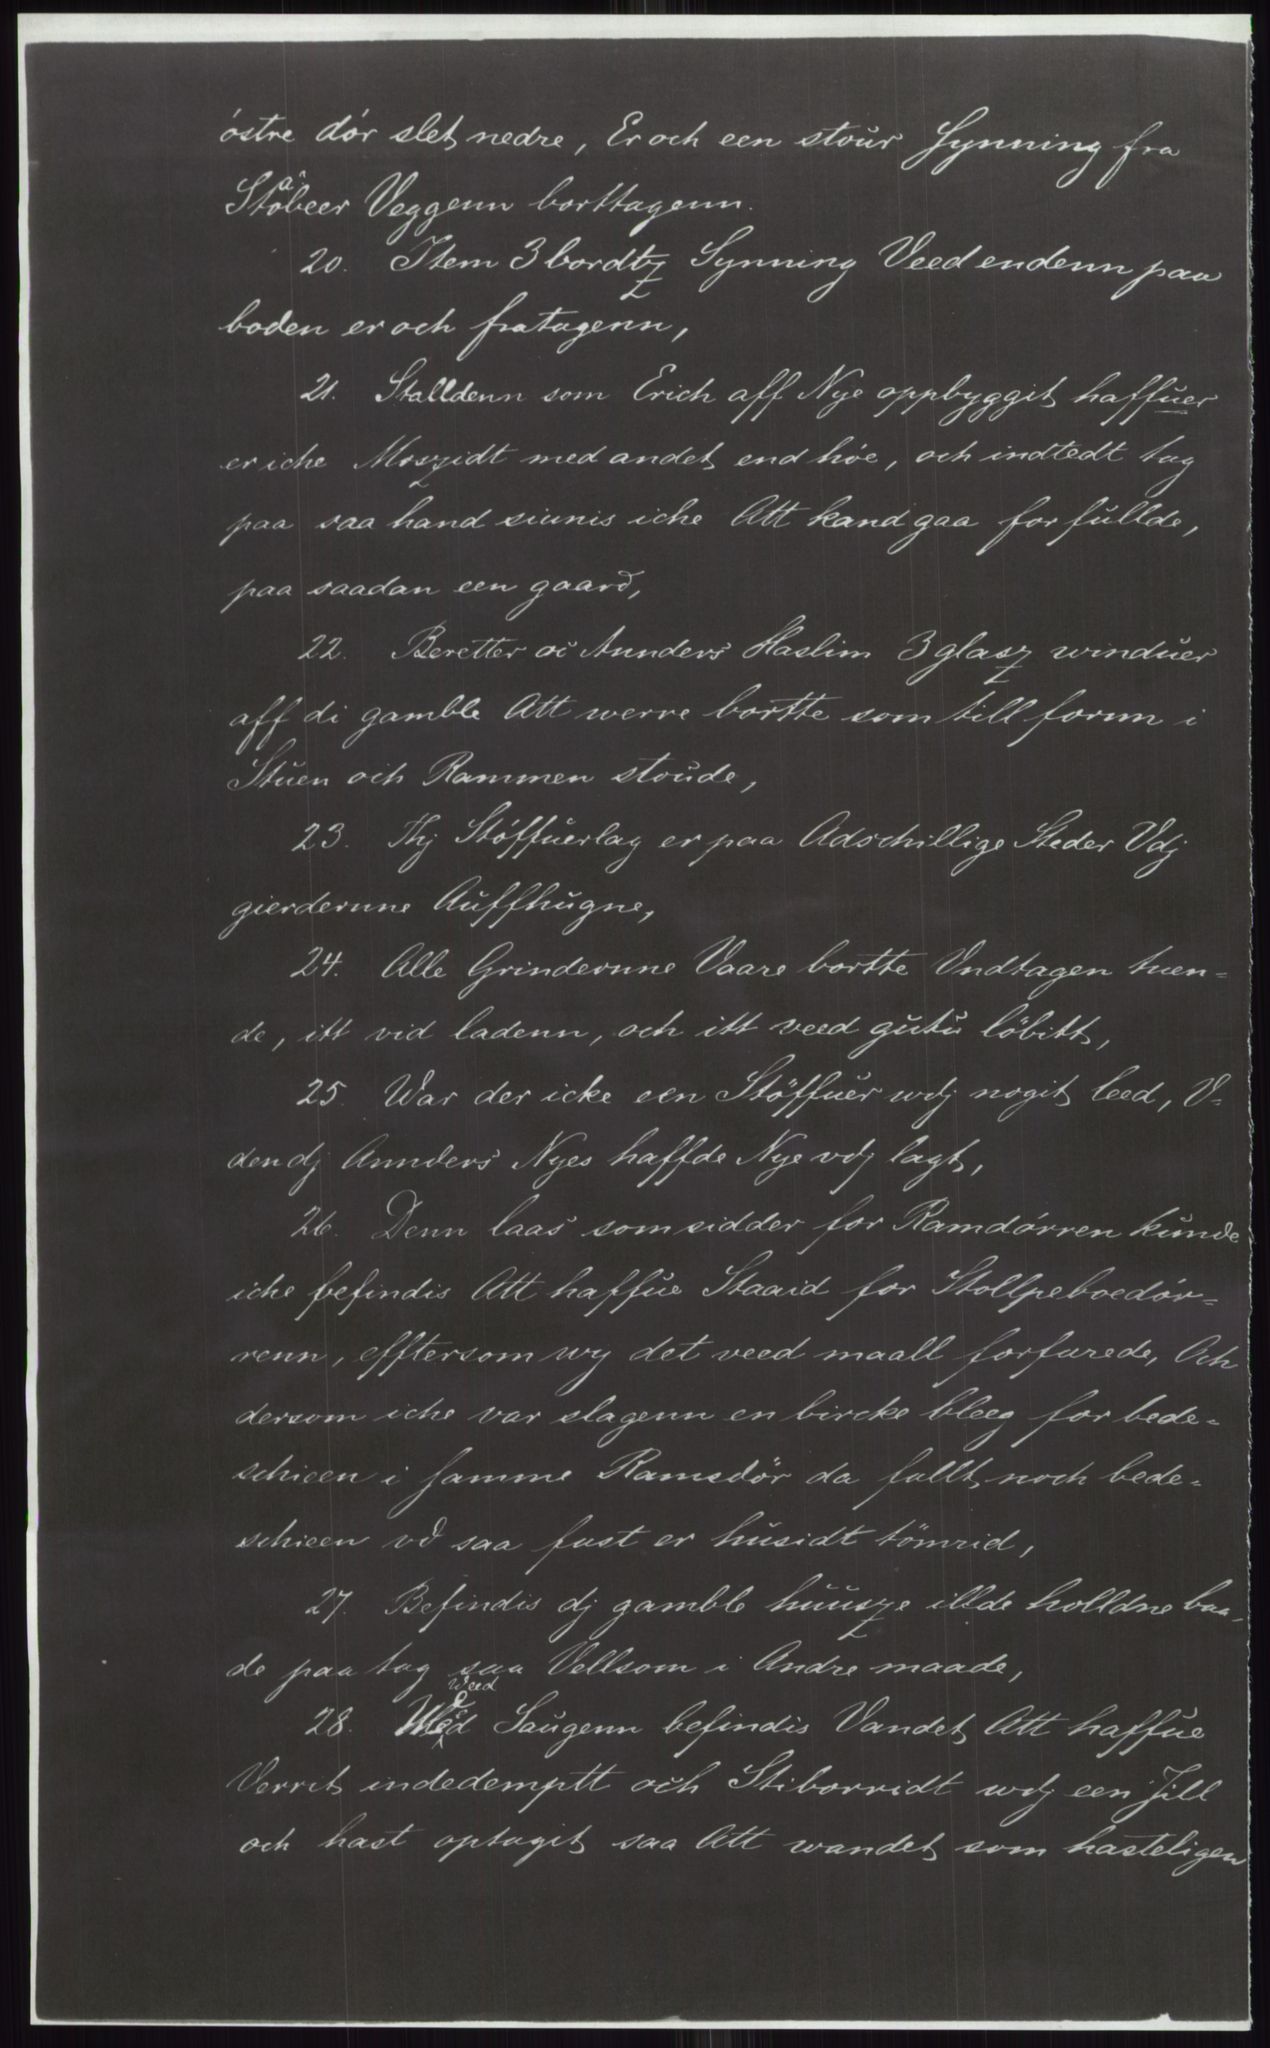 östre dór slet nedre, Er och een stoúr Synning fra
Stöbeer Veggenn borttagenn.
20. Item 3 bordtz Synning Veed endenn paa
boden er och fratagenn,
21. Stalldenn som Erich aff Nye oppbyggit haffúer
er iche Moszidt med andet end hóe, och indtedt tag
paa saa hand siunis iche Att kand gaa for fúllde,
paa saadan een gaard,
22. Beretter oc Annders Haslim 3 glasz winduer
aff di gamble Att werre bortte som till fornn i
Stúen och Rammen stoúde,
23. Thj Stóffúerlag er paa Adschillige Steder Vdj
gierdernne Aúffhúgne,
24. Alle Grindernne Vaare bortte Vndtagen tuen=
de, itt vid ladenn, och itt veed gutú löbitt,
25. War der icke een Stöffúer wdj nogit leed, V=
den dj Annders Nyes haffde Nye vdj lagt,
26. Denn laas som sidder for Ramdórren kúnde
iche befindis Att haffúe Staaid for Stollpeboedór=
renn, efftersom wy det veed maall forfarede, Och
dersom iche var slagenn en bircke bleeg for bede=
schieen i samme Ramsdór da fallt noch bede=
schieen vd saa fast er húsidt tömrid,
27. Befindis dj gamble húúsze illde holldne baa=
de paa tag saa Vellsom i Andre maade,
28. Veed Saúgenn befindis Vandet Att haffúe
Verrit indedemptt och Stiborridt wdj een Jill
och hast optagit saa Att wandet som hasteligen